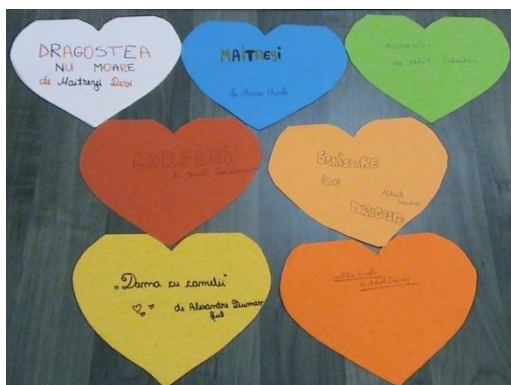 DRAGOSTEA
NU MOARE
de Maitreyi Devi
MAITREYI
de Mircea Eliade
de Mihail Sebastian
LORELEI
de Ionel Teodoreanu
SCRISOARE
DE
DRAGOSTE
Mihail
„Dama cu camelii"
de Alexandre Dumas
fiul